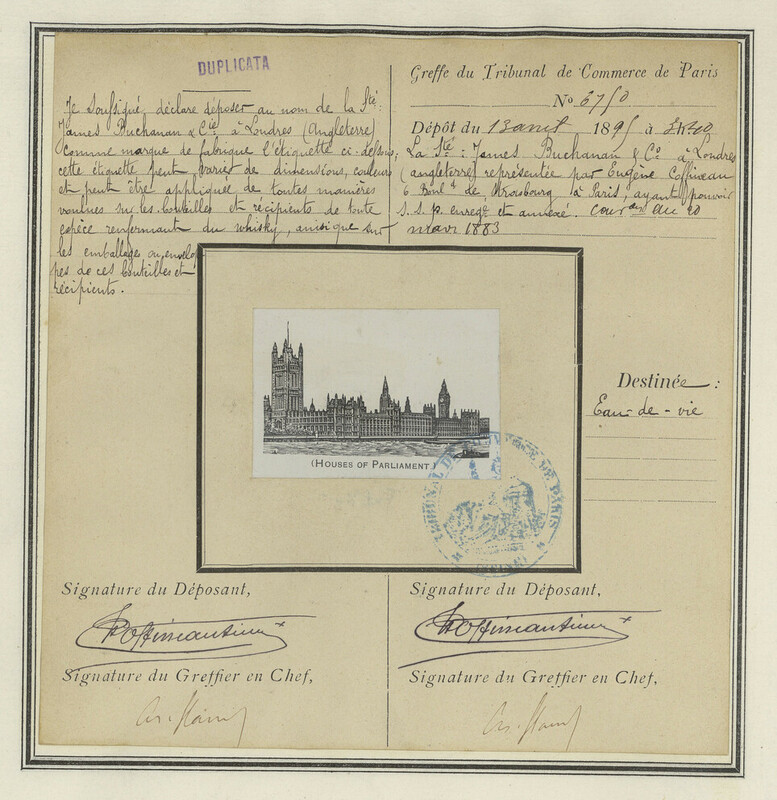 DUPLICATA
Je soussigné, déclare déposer au nom de la Sté
James Buchanan & Cie à Londres (Angleterre)
comme marque de fabrique l'étiquette ci-dessous,
cette étiquette peut varier de dimensions, couleurs
et peut être appliquée de toutes manières
voulues sur les bouteilles et récipients de toute
espèce renfermant du whisky, ainsi que sur
les emballages ou envelop
pes de ces bouteilles et
récipients.
Greffe du Tribunal de Commerce de Paris
No
Dépôt du 13 avril 1895 à
La Sté: James Buchanan & Co à Londres
(Angleterre) représentée par Eugène
6 Bould de Strasbourg à Paris, ayant pouvoir
s. s. p. enregé et annexé. du 20
mars 1883
(HOUSES OF PARLIAMENT.)
TRIBUNAL DE COMMERCE DE PARIS
Destinée :
Eau-de-vie
Signature du Déposant,
Signature du Déposant,
Signature du Greffier en Chef,
Signature du Greffier en Chef,